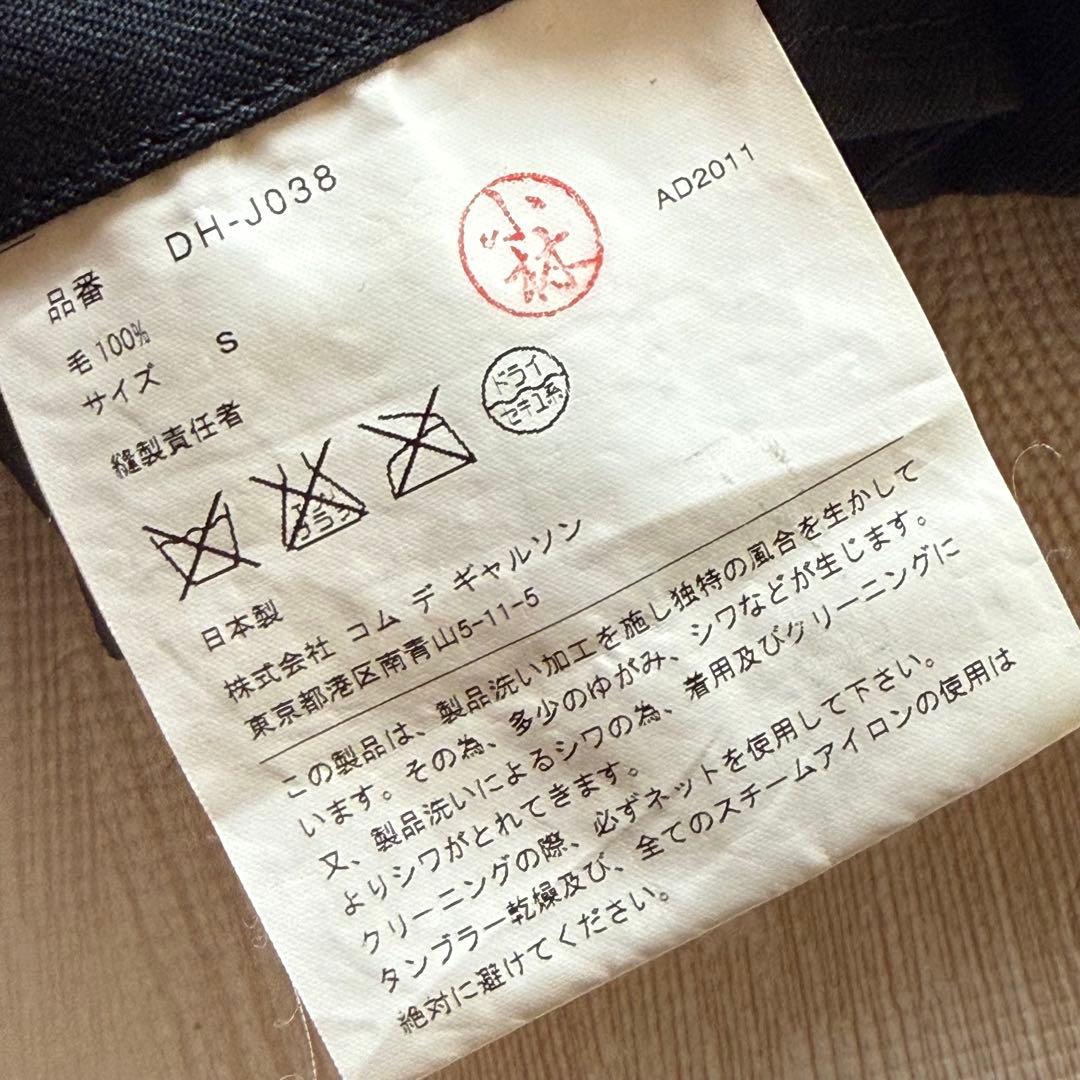 品番 DH-J038 AD2011
毛 100%
サイズ S
縫製責任者
小林
ドライ
セキユ系
エンソ
サラシ
日本製
株式会社 コム デ ギャルソン
東京都港区南青山5-11-5
この製品は、製品洗い加工を施し独特の風合を生かして
います。その為、多少のゆがみ、シワなどが生じます。
又、製品洗いによるシワの為、着用及びクリーニングに
よりシワがとれてきます。
クリーニングの際、必ずネットを使用して下さい。
タンブラー乾燥及び、全てのスチームアイロンの使用は
絶対に避けてください。